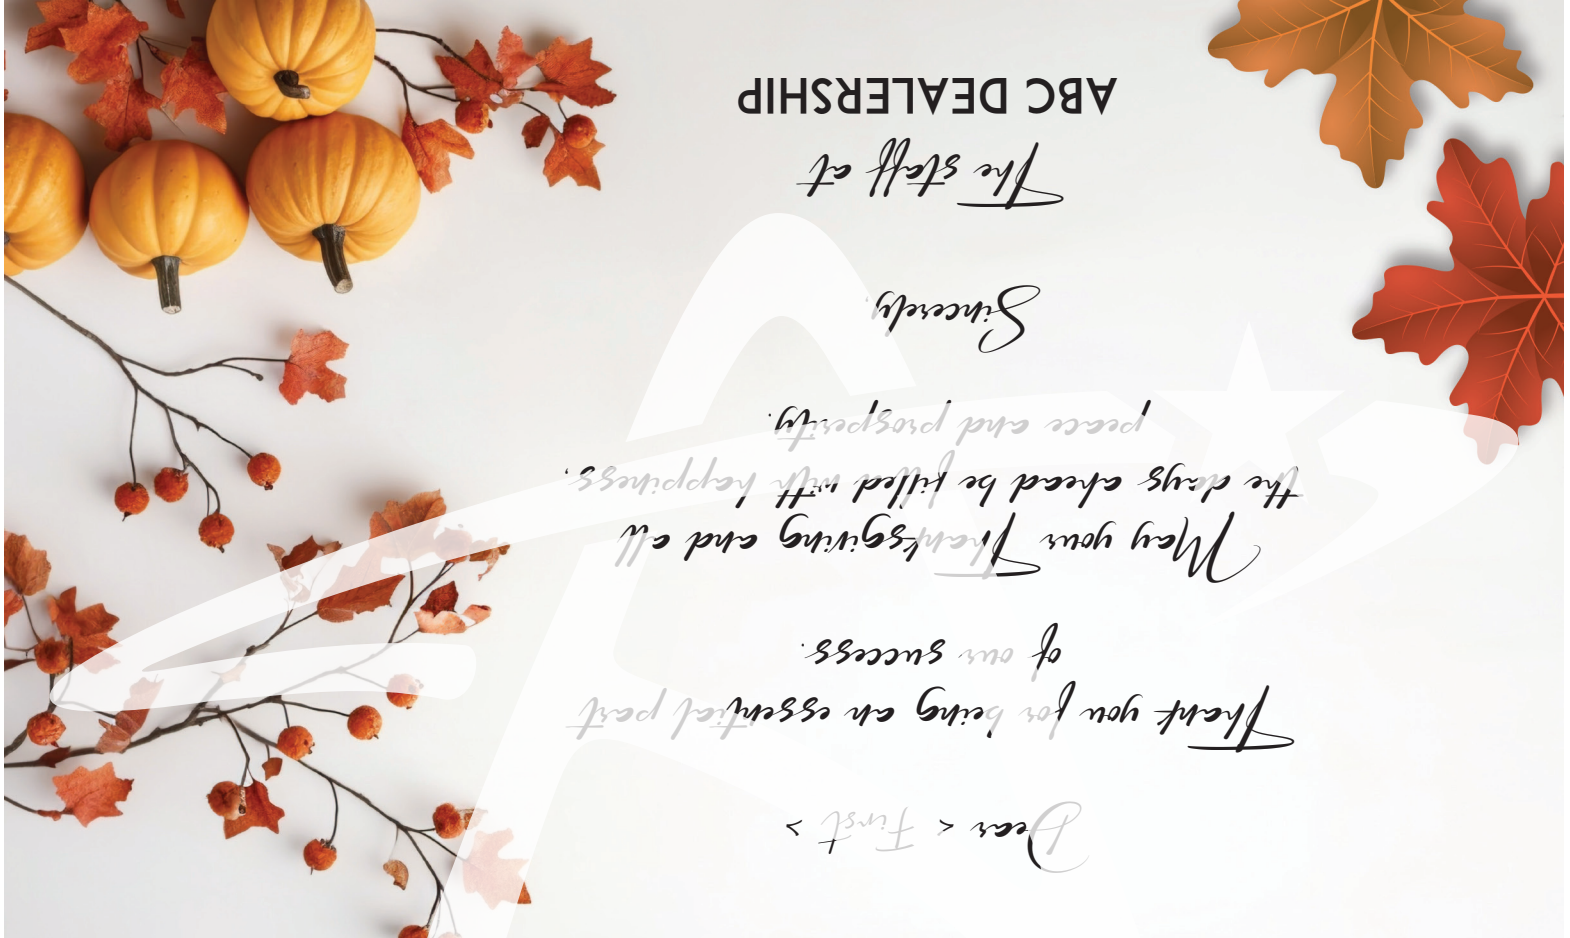 Dear < First >
Thank you for being an essential part
of our success.
May your Thanksgiving and all
the days ahead be filled with happiness,
peace and prosperity.
Sincerely,
The staff at
ABC DEALERSHIP